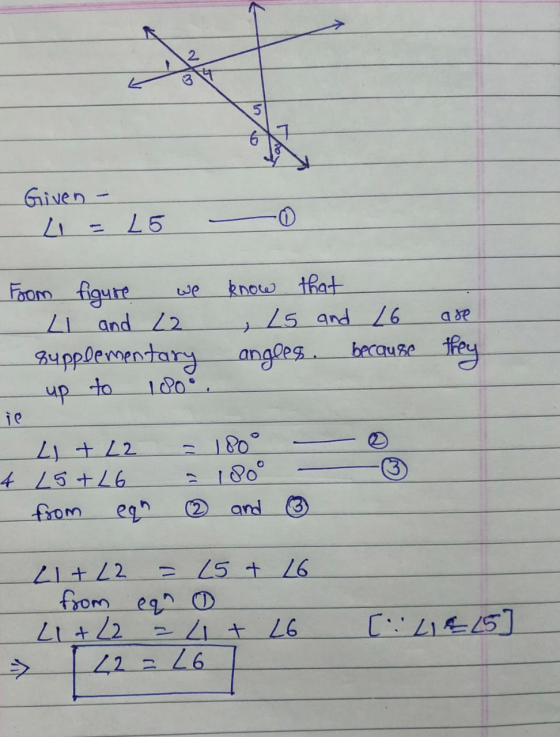 1 2
3 4
5
6 7
8
Given -
∠1 = ∠5 —— ①
From figure we know that
∠1 and ∠2 , ∠5 and ∠6 are
supplementary angles. because they
up to 180°.
ie
∠1 + ∠2 = 180° —— ②
& ∠5 + ∠6 = 180° —— ③
from eqⁿ ② and ③
∠1 + ∠2 = ∠5 + ∠6
from eqⁿ ①
∠1 + ∠2 = ∠1 + ∠6 [∵ ∠1 = ∠5]
⇒ ∠2 = ∠6